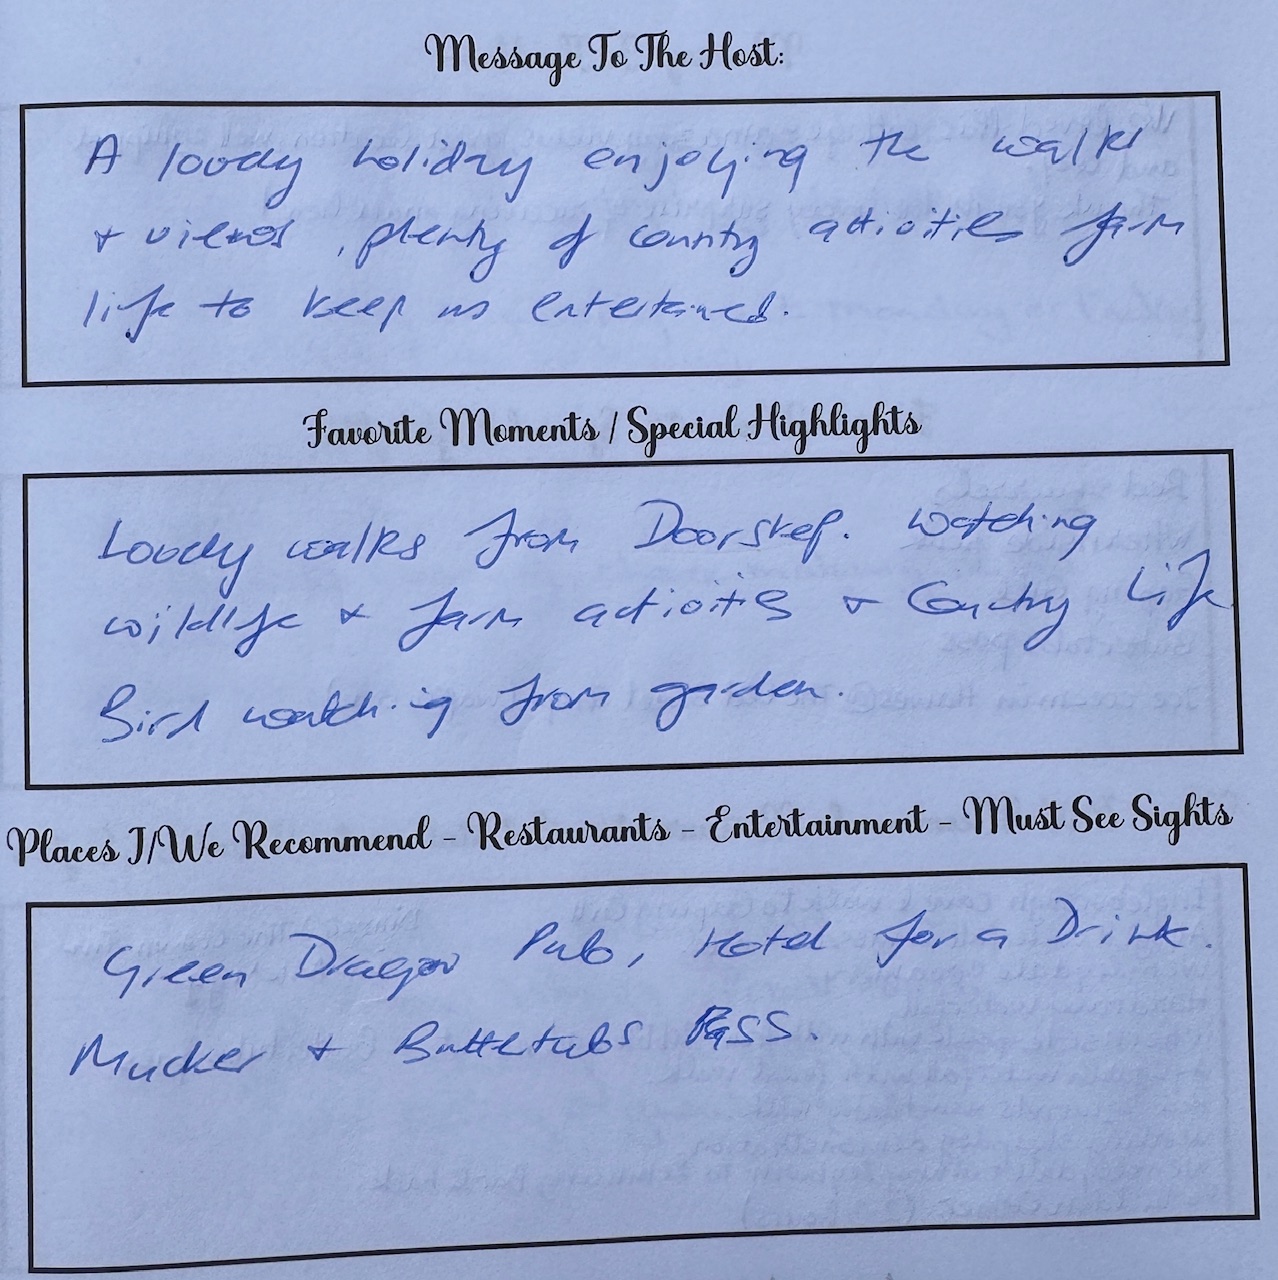 Message To The Host:
A lovely holiday enjoying the walks
+ views, plenty of country activities farm
life to keep us entertained.
Favorite Moments / Special Highlights
Lovely walks from Doorstep. Watching
wildlife + farm activities + Country Life
Bird watching from garden.
Places I/We Recommend - Restaurants - Entertainment - Must See Sights
Green Dragon Pub, Hotel for a Drink.
Mucker + Buttertubs Pass.